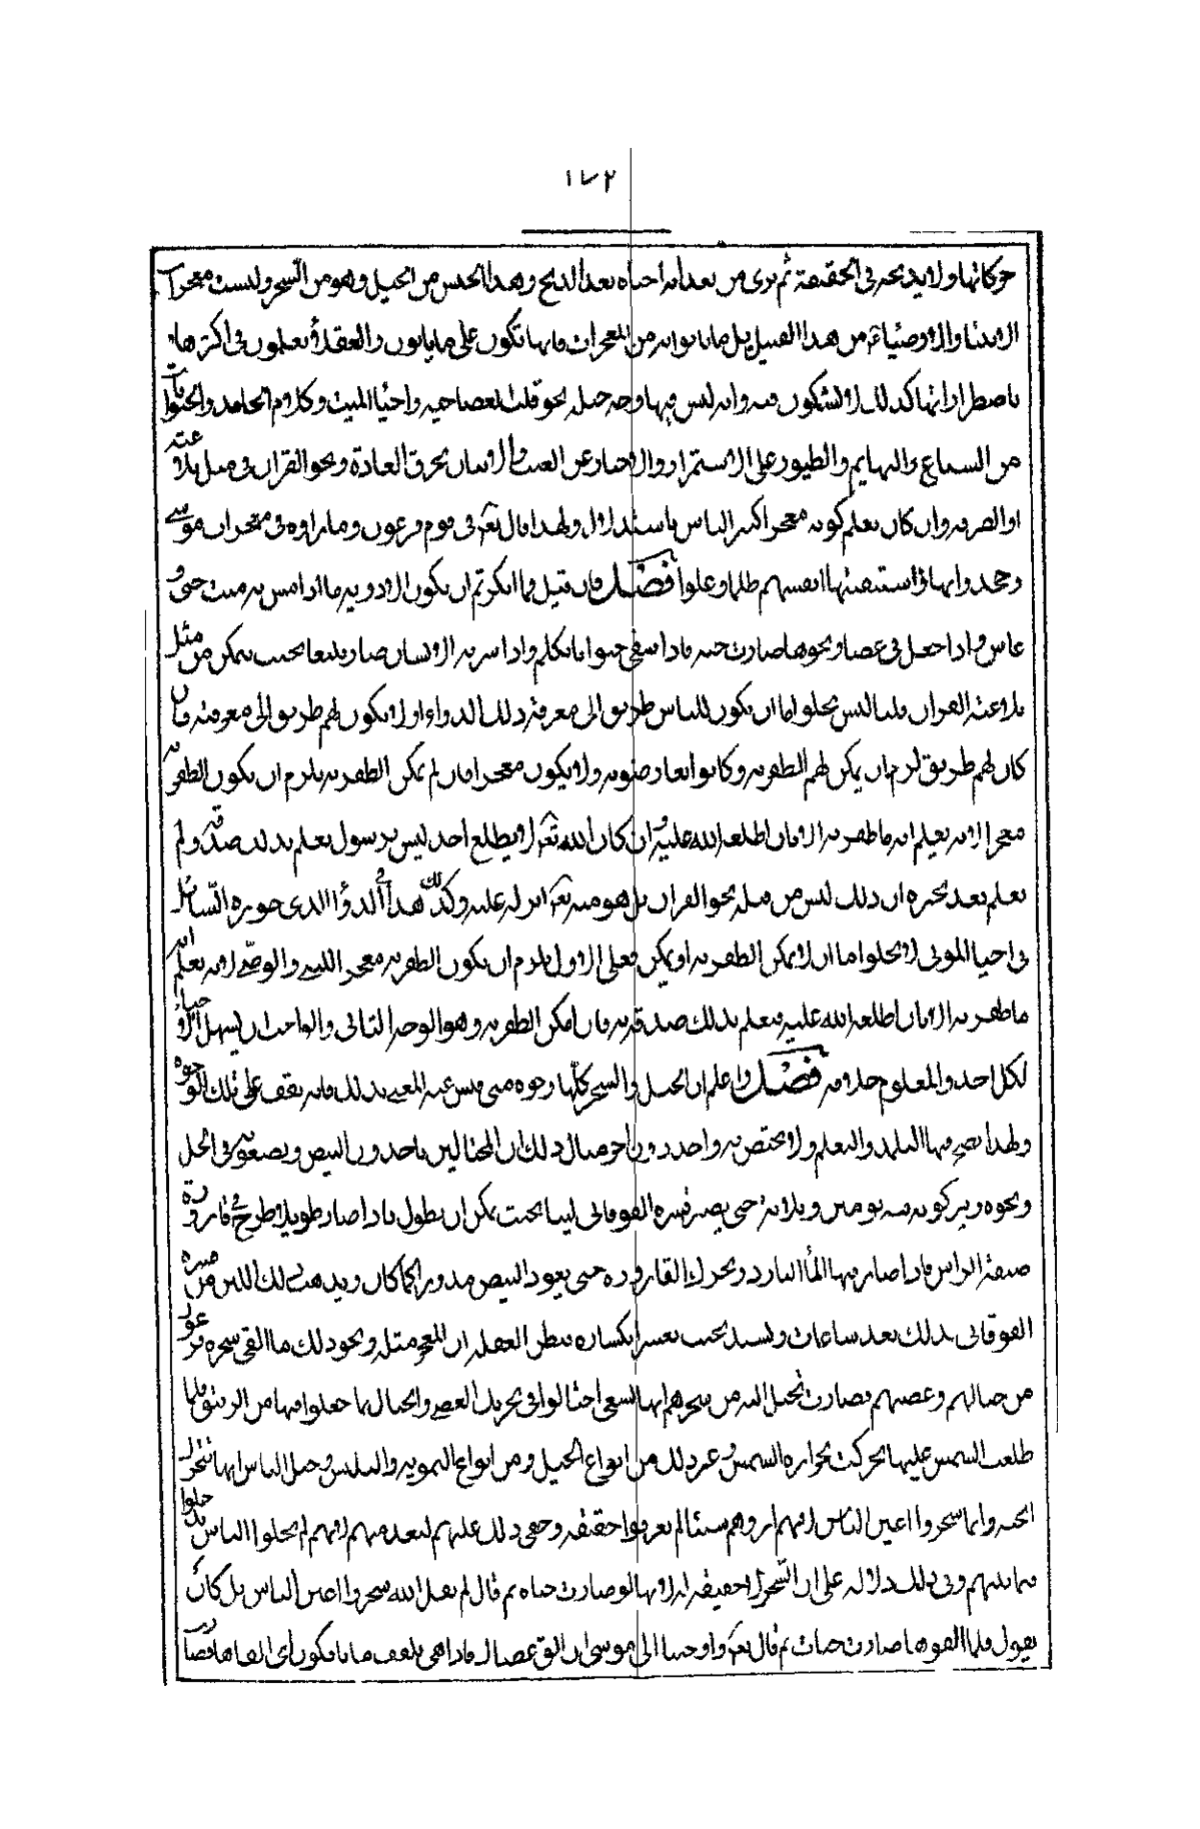 ١٧٢
حركاتها ولا يذبحه في الحقيقة ثم يرى من بعد انه احياه بعد الذبح وهذا الجنس من الحيل وهو من السحر وليست معجزات
الانبياء والاوصياء من هذا القبيل بل ما ياتوا به من المعجزات فانها تكون على ما ياتون والعقلاء يعلمون في اكثرها
باضطرار انها كذلك لا يشكون فيه وانه ليس فيها وجه حيلة نحو قلب العصا حية واحياء الميت وكلام الجامد والحيوانات
من السباع والبهايم والطيور على الاستمرار والاخبار عن الغيب والاتيان بخرق العادة ونحو القران في مثل بلاغته
او الصرفه وان كان يعلم كونه معجزا اكثر الناس باستدلال ولهذا قال تع في قوم فرعون وما راوه في معجزات موسى
وجحدوا بها واستيقنتها انفسهم ظلما وعلوا فصل فان قيل فما انكرتم ان يكون الادوية ما اذا مس به ميت حيى و
عاش واذا جعل في عصا ونحوها صارت حية فاذا سقى حيوانا تكلم واذا شربه الانسان صار بليغا بحيث يتمكن من مثل
بلاغة القران قلنا ليس يخلوا اما ان يكون للناس طريق الى معرفة ذلك الدواء او لا يكون لهم طريق الى معرفته فان
كان لهم طريق لزم ان يمكن لهم الظفر به وكانوا يعارضونه ولا يكون معجزا فان لم يمكن الظفر به يلزم ان يكون الظفر به
معجزا لانه يعلم انه ما ظفر به الا بان اطلعه الله عليه وان كان الله تع لا يطلع احد ليس برسول يعلم بذلك صدقه ولم
يعلم بعد بخبره ان ذلك ليس من قبله نحو القران بل هو منه تع انزله عليه وكذلك هذا في الدواء الذي جوزه السائل
في احياء الموتى لا يخلوا اما ان لا يمكن الظفر به او يمكن فعلى الاول يلزم ان يكون الظفر به معجز النبي والوصي لانه يعلم انه
ما ظفر به الا بان اطلعه الله عليه فيعلم بذلك صدقه فان امكن الظفر به وهو الوجه الثاني والواجب ان يسهل الاحياء
لكل احد والمعلوم خلافه فصل واعلم ان الحيل والسحر كلها وجوه متى فتش عنه المعنى بذلك فانه يقف على تلك الوجوه
ولهذا يصح فيها التلمذ والتعلم ولا يختص به واحد دون اخر مثال ذلك ان المحتالين ياخذون البيض ويضعونه في الخل
ونحوه ويتركونه فيه يومين وثلاثة حتى يصير قشره الفوقاني لينا بحيث يمكن ان يطول فاذا صار طويلا طرح في قارورة
ضيقة الراس فاذا صار فيها الماء البارد ويحرك القارورة حتى يعود البيض مدورا كما كان ويذهب ذلك اللين من قشره
الفوقاني بذلك بعد ساعات ويشتد بحيث يعسر انكساره فيظن الغفلة ان المعجز مثله ونحو ذلك ما القى سحرة فرعون
من حبالهم وعصيهم فصارت تخيل اليه من سحرهم انها تسعى احتالوا في تحريك العصى والحبال بما جعلوا فيها من الزيبق فلما
طلعت الشمس عليها تحركت بحرارة الشمس وغير ذلك من انواع الحيل ومن انواع التمويه والتلبيس وخيل الناس انها تتحرك
الحية وانما سحروا اعين الناس لانهم اروهم شيئا لم يعرفوا حقيقته وخفى ذلك عليهم لبعده منهم لانهم لم يخلوا الناس يدخلوا
فيما بينهم وفي ذلك دلالة على ان السحر لا حقيقة له لانها لو صارت حياة ثم قال لم يقل الله سحروا اعين الناس بل كان
يقول فلما القوها صارت حيات ثم قال تع واوحينا الى موسى ان الق عصاك فاذا هي تلقف ما يافكون اى القاها فصارت